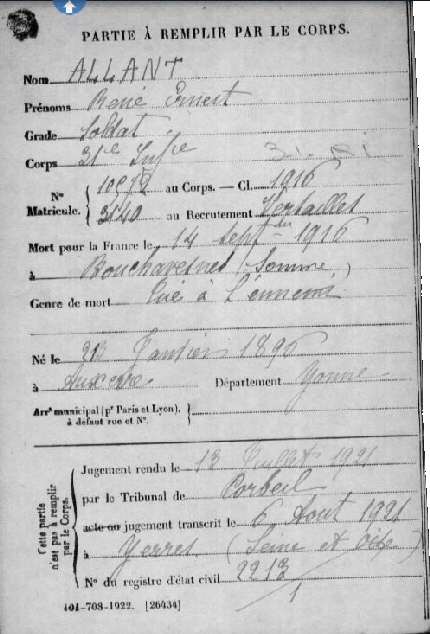 PARTIE À REMPLIR PAR LE CORPS.
Nom ALLANT
Prénoms René Ernest
Grade Soldat
Corps 31e Infie 31. RI
N° Matricule. 
au Corps. — Cl. 1916
3140 au Recrutement Versailles
Mort pour la France le 14 septbre 1916
à Bouchavesnes (Somme)
Genre de mort Tué à l'ennemi
Né le Janvier 1896
à Auxerre. Département Yonne
Arrt municipal (pr Paris et Lyon),
à défaut rue et N°.
Cette partie n'est pas à remplir par le Corps.
Jugement rendu le 13 Juillet 1921
par le Tribunal de Corbeil
acte ou jugement transcrit le 6 Août 1921
à Yerres (Seine et Oise)
N° du registre d'état civil 2213
1
101-708-1922. [26434]